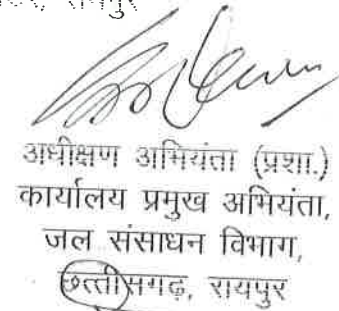 रायपुर
अधीक्षण अभियंता (प्रशा.)
कार्यालय प्रमुख अभियंता,
जल संसाधन विभाग,
छत्तीसगढ़, रायपुर